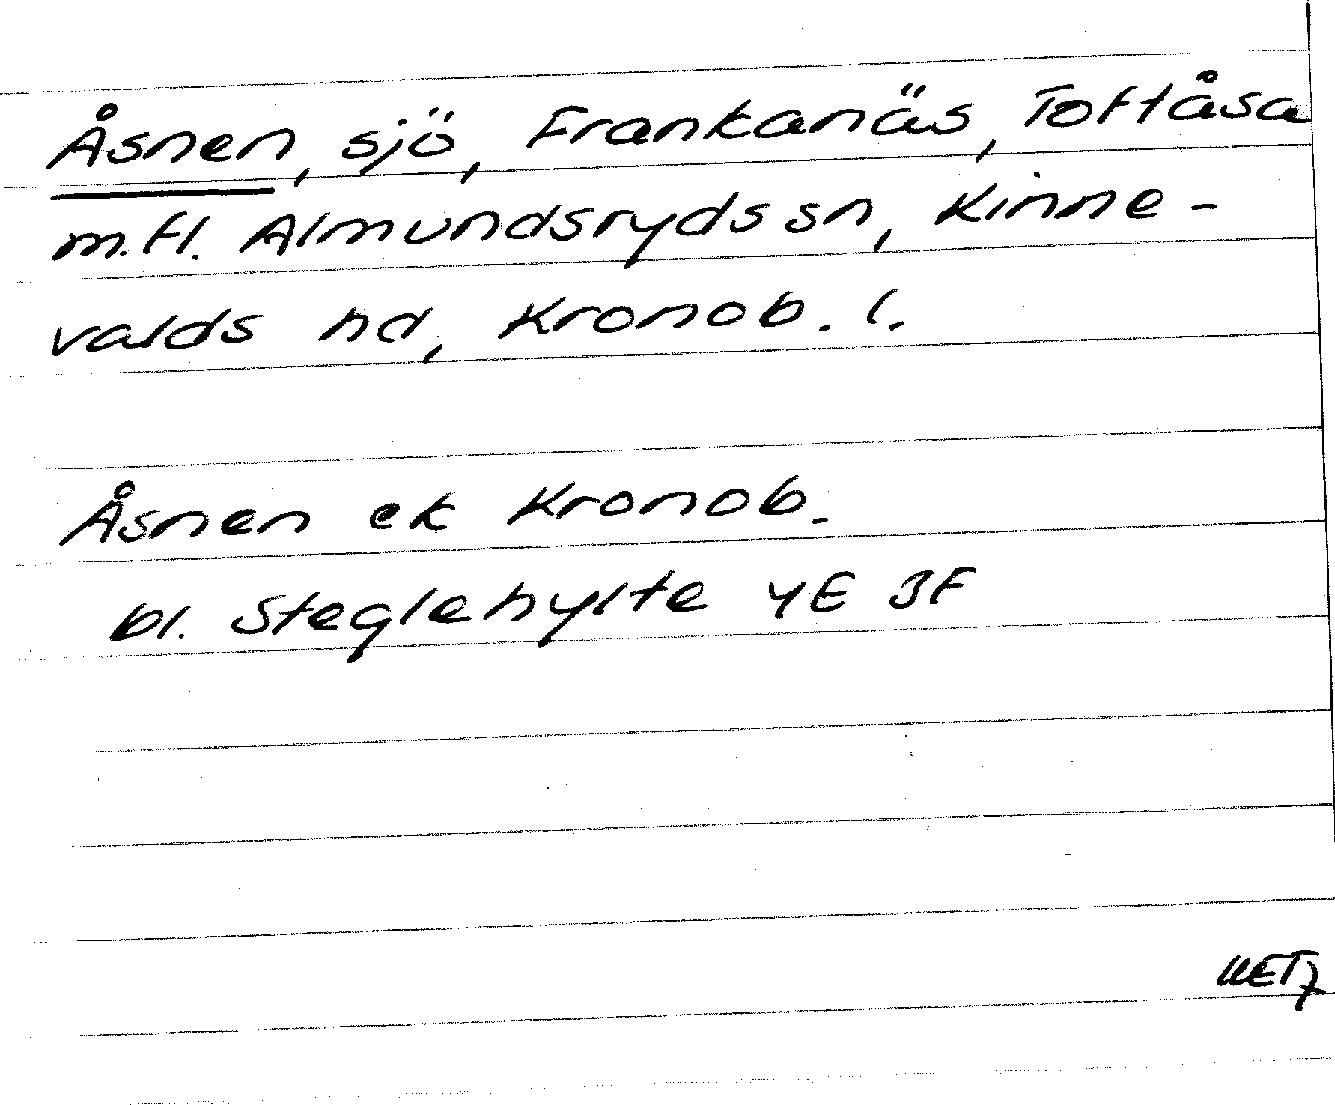 Åsnen, sjö, Frankanäs, Toftåsa
m.fl. Almundsryds sn, Kinne-
valds hd, Kronob. l.
Åsnen ek Kronob.
bl. Steglehylte 4E 3F